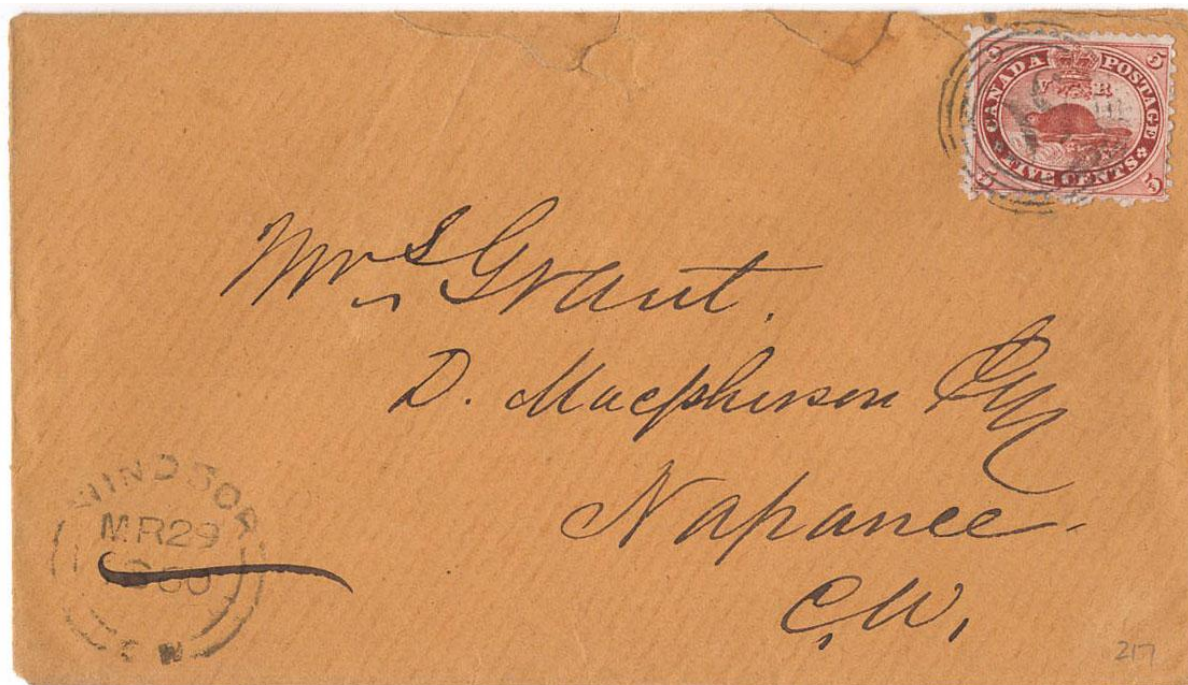 CANADA POSTAGE
V R
FIVE CENTS
5 5 5 5
Mrs Grant.
D. Macpherson Esq
Napanee
C.W.
WINDSOR
MR 29
1860
C W
217